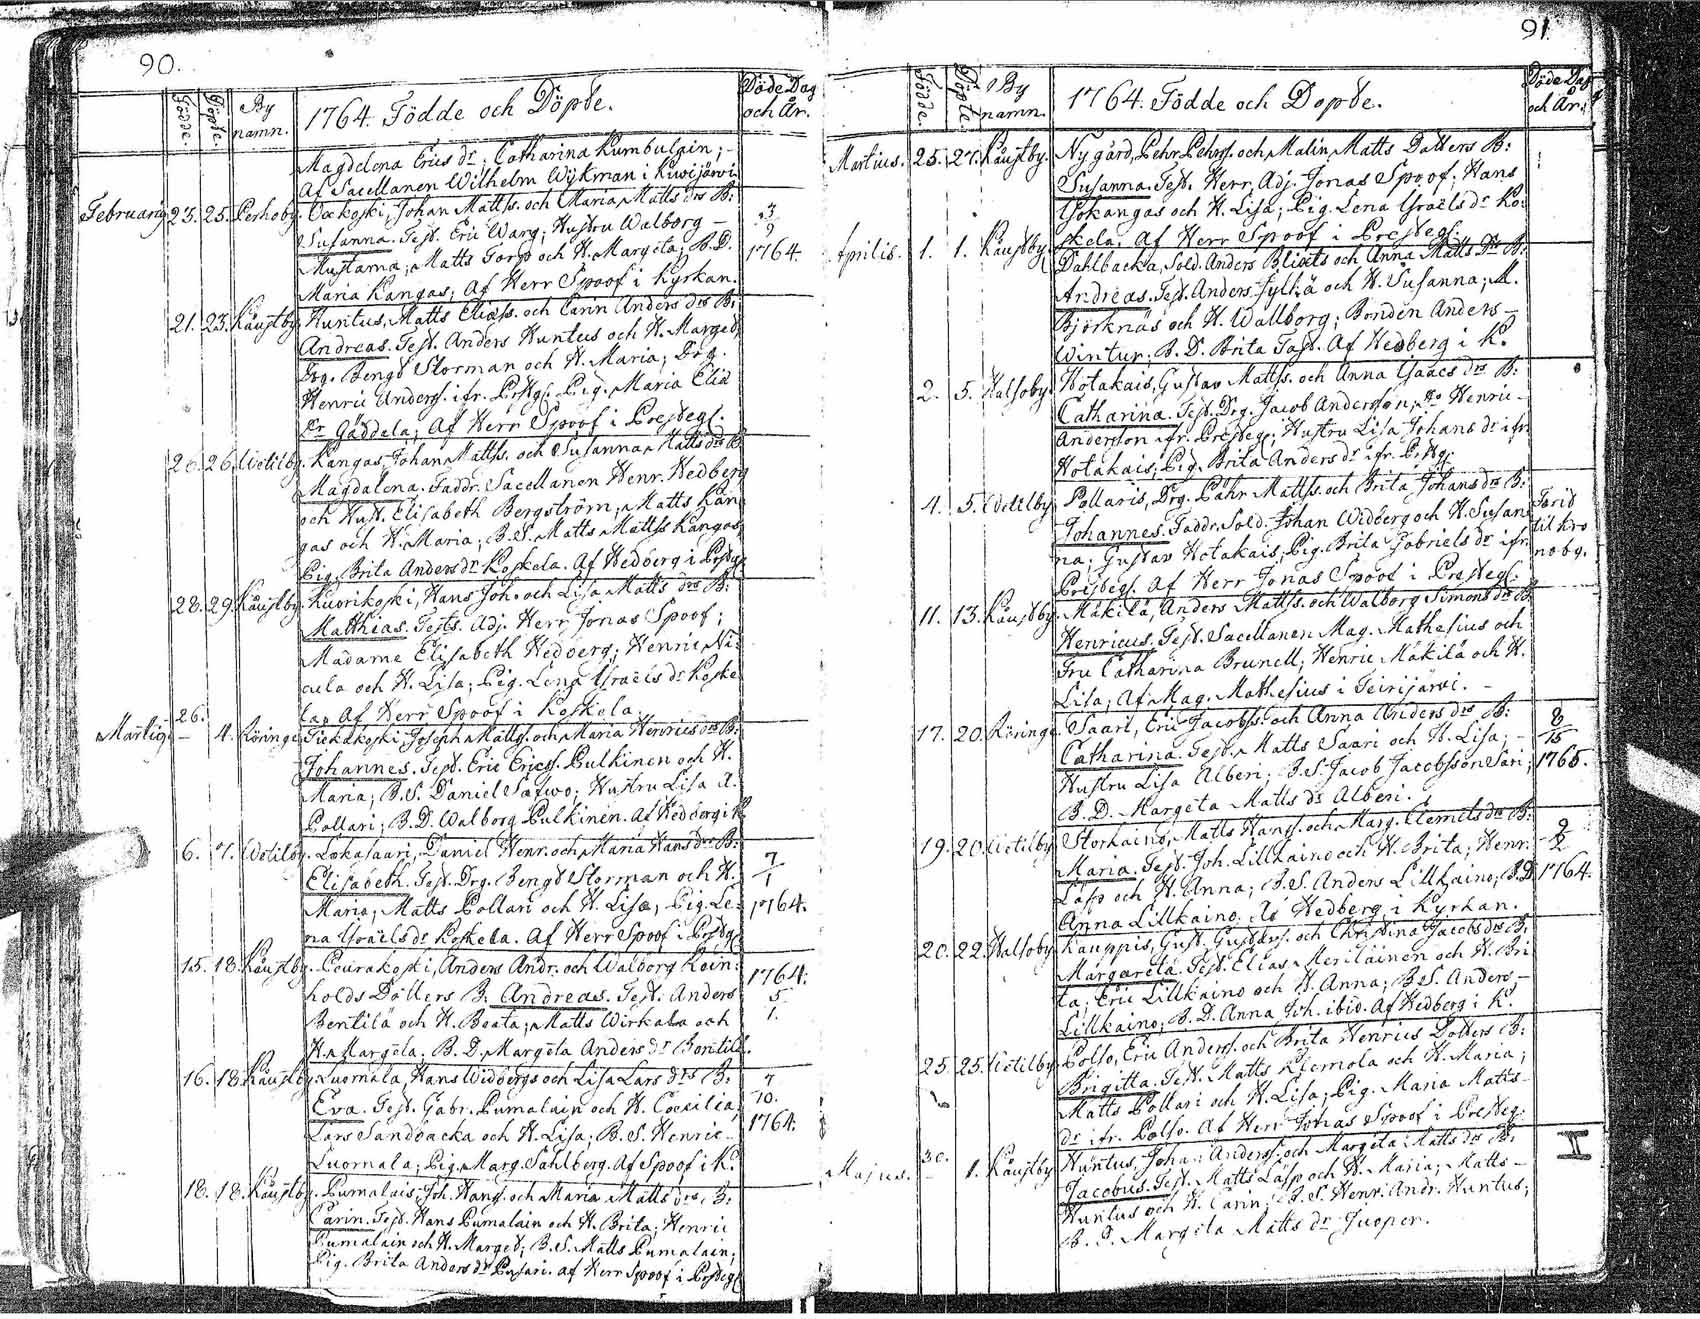 90.
Födde.
Döpte.
By
namn.
1764. Födde och Döpte.
Döde Dag
och År.
Magdelena Erics dr; Catharina Kumbulain; -
Af Sacellanen Wilhelm Wijkman i Kiwijärwi
Februarij 23. 25. Perhoby. Johan Mattss. och Maria Matts drs B:
Susanna. Test. Eric Warg; Hustru Walborg - 3/9
Mustama; Matts Torp och H. Margeta; B. D. 1764.
Maria Kangas; Af Herr Spoof i Kyrkan.
21. 23. Käustby. Huntus, Matts Eliæss. och Carin Anders drs B:
Andreas. Test. Anders Huntus och H. Marged
Drg. Bengt Storman och H. Maria; Drg.
Henric Anderss. i fr. Prstg; Pig. Maria Elia
dr Gäddela; Af Herr Spoof i Prestegl.
26. 26. Wetilby. Kangas, Johan Mattss. och Susanna Matts drs B
Magdalena. Faddr. Sacellanen Henr. Hedberg
och Hust. Elisabeth Bergström; Matts Kan
gas och H. Maria; B. S. Matts Mattss Kangas,
Pig. Brita Anders dr Koskela. Af Hedberg i Prstg
28. 29. Käustby. Kuorikoski, Hans Joh. och Lisa Matts drs B:
Matthias. Tests. Adj. Herr Jonas Spoof;
Madame Elisabeth Hedberg; Henric Ni-
cula och H. Lisa; Pig. Lena Israels dr Koske
la; Af Herr Spoof i Koskela.
26.
Martij. - 4. Röringe Joseph Mattss. och Maria Henrics drs B:
Johannes. Test. Eric Ericss. Pulkinen och H.
Maria; B. S. Daniel Safwo; Hustru Lisa A.
Pollari; B. D. Walborg Pulkinen. Af Hedberg i K
6. 7. Wetilby. Lokasaari, Daniel Henr. och Maria Hans drs B: 7/1
Elisabeth. Test. Drg. Bengt Storman och H.
Maria; Matts Pollari och H. Lisa; Pig. Le- 1764.
na Israels dr Koskela. Af Herr Spoof i Prstg
15. 18. Käustby. Peurakoski, Anders Andr. och Walborg Rein- 1764.
holds Dotters B. Andreas. Test. Anders 5/1.
Bentilä och H. Beata; Matts Wirkala och
H. Margeta; B. D. Margeta Anders dr Bentilä.
16. 18. Käustby. Luomala, Hans Widbergs och Lisa Lars drs B: 7/10.
Eva. Test. Gabr. Pumalain och H. Coecilia; 1764.
Lars Sandbacka och H. Lisa; B. S. Henric
Luomala; Pig. Marg. Sahlberg. Af Spoof i K.
18. 18. Käustby. Pumalais, Joh. Hanss. och Maria Matts drs B:
Carin. Test. Hans Pumalain och H. Brita; Henric
Pumalain och H. Marged; B. S. Matts Pumalain;
Pig. Brita Anders dr Pusari. Af Herr Spoof i Prstegl
91
Födde.
Döpte.
By
namn.
1764. Födde och Döpte.
Döde Dag
och År.
Martius. 25. 27. Käustby. Nygård, Pehr Pehrss. och Malin Matts Dotters B:
Susanna. Test. Herr Adj. Jonas Spoof; Hans
Isokangas och H. Lisa; Pig. Lena Israels dr Ko-
skela; Af Herr Spoof i Prestegl.
Aprilis. 1. 1. Käustby. Dahlbacka, Sold. Anders Blixts och Anna Matts Dr B:
Andreas. Test. Anders Jylhä och H. Susanna; M.
Björknäs och H. Wallborg; Bonden Anders -
Wintur; B. D. Brita Af Hedberg i K.
2. 5. Halsoby. Hotakais, Gustav Mattss. och Anna Isaacs drs B:
Catharina. Test. Drg. Jacob Andersson; Henric
Andersson i fr. Presteg; Hustru Lisa Johans dr i fr.
Hotakais; Pig. Brita Anders dr i fr. Prstg.
4. 5. Wetilby Pollaris, Drg. Pähr Mattss. och Brita Johans drs B: Farit
Johannes. Faddr. Sold. Johan Widberg och H. Susan til Kro
na; Gustav Hotakais; Pig. Brita Gabriels dr i fr. noby.
Prestegl. Af Herr Jonas Spoof i Prestegl.
11. 13. Käustby. Mäkilä, Anders Mattss. och Walborg Simons dr B.
Henricus. Test. Sacellanen Mag. Mathesius och
Fru Catharina Brunell; Henric Mäkilä och H.
Lisa; Af Mag. Mathesius i Teirijärwi. -
17. 20. Röringe Saari, Eric Jacobss. och Anna Anders drs B: 8/15
Catharina. Test. Matts Saari och H. Lisa; -
Hustru Lisa Alberi; B. S. Jacob Jacobsson Sari; 1765.
B. D. Margeta Matts dr Alberi.
19. 20. Wetilby Storkaino, Matts Hanss. och Marg. Clemets drs B: 9/2
Maria. Test. Joh. Lillkaino och H. Brita; Henr.
Lasp och H. Anna; B. S. Anders Lillkaino; B. D 1764.
Anna Lillkaino. Af Hedberg i Kyrkan.
20. 22. Halsoby Kauppis, Gust. Gustavss. och Christina Jacobs drs B.
Margareta. Test. Elias Meriläinen och H. Bri
ta; Eric Lillkaino och H. Anna; B. S. Anders -
Lillkaino; B. D. Anna Joh. ibid. Af Hedberg i K.
25. 25. Wetilby Polso, Eric Anderss. och Brita Henrics Dotters B:
Brigitta. Test. Matts Klemola och H. Maria;
Matts Pollari och H. Lisa; Pig. Maria Matts
dr i fr. Polso. Af Herr Jonas Spoof i Presteg.
30.
Majus. - 1. Käustby Huntus, Johan Anderss. och Margeta Matts drs B:
Jacobus. Test. Matts Lasp och H. Maria; Matts -
Huntus och H. Carin; B. S. Henr. Andr. Huntus;
B. D. Margeta Matts dr Juoper.